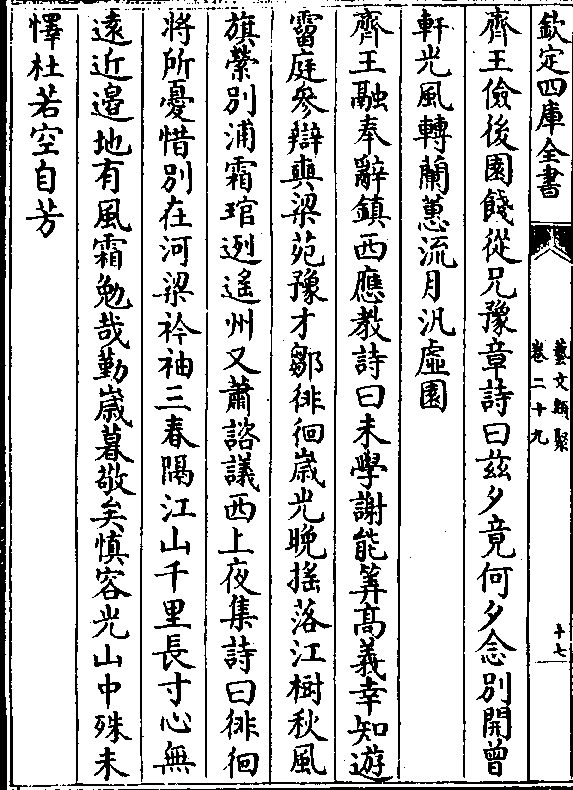 欽定四庫全書
藝文類聚
卷二十九
十七
齊王儉後園餞從兄豫章詩曰兹夕竟何夕念别開曾
軒光風轉蘭蕙流月汎虛園
齊王融奉辭鎮西應教詩曰未學謝能筭高義幸知遊
霤庭參辯奭梁苑豫才鄒徘徊歳光晚揺落江樹秋風
旗縈别浦霜琯迾遥州又蕭諮議西上夜集詩曰徘徊
將所憂惜别在河梁衿袖三春隔江山千里長寸心無
遠近邉地有風霜勉哉勤歳暮敬矣慎容光山中殊未
懌杜若空自芳